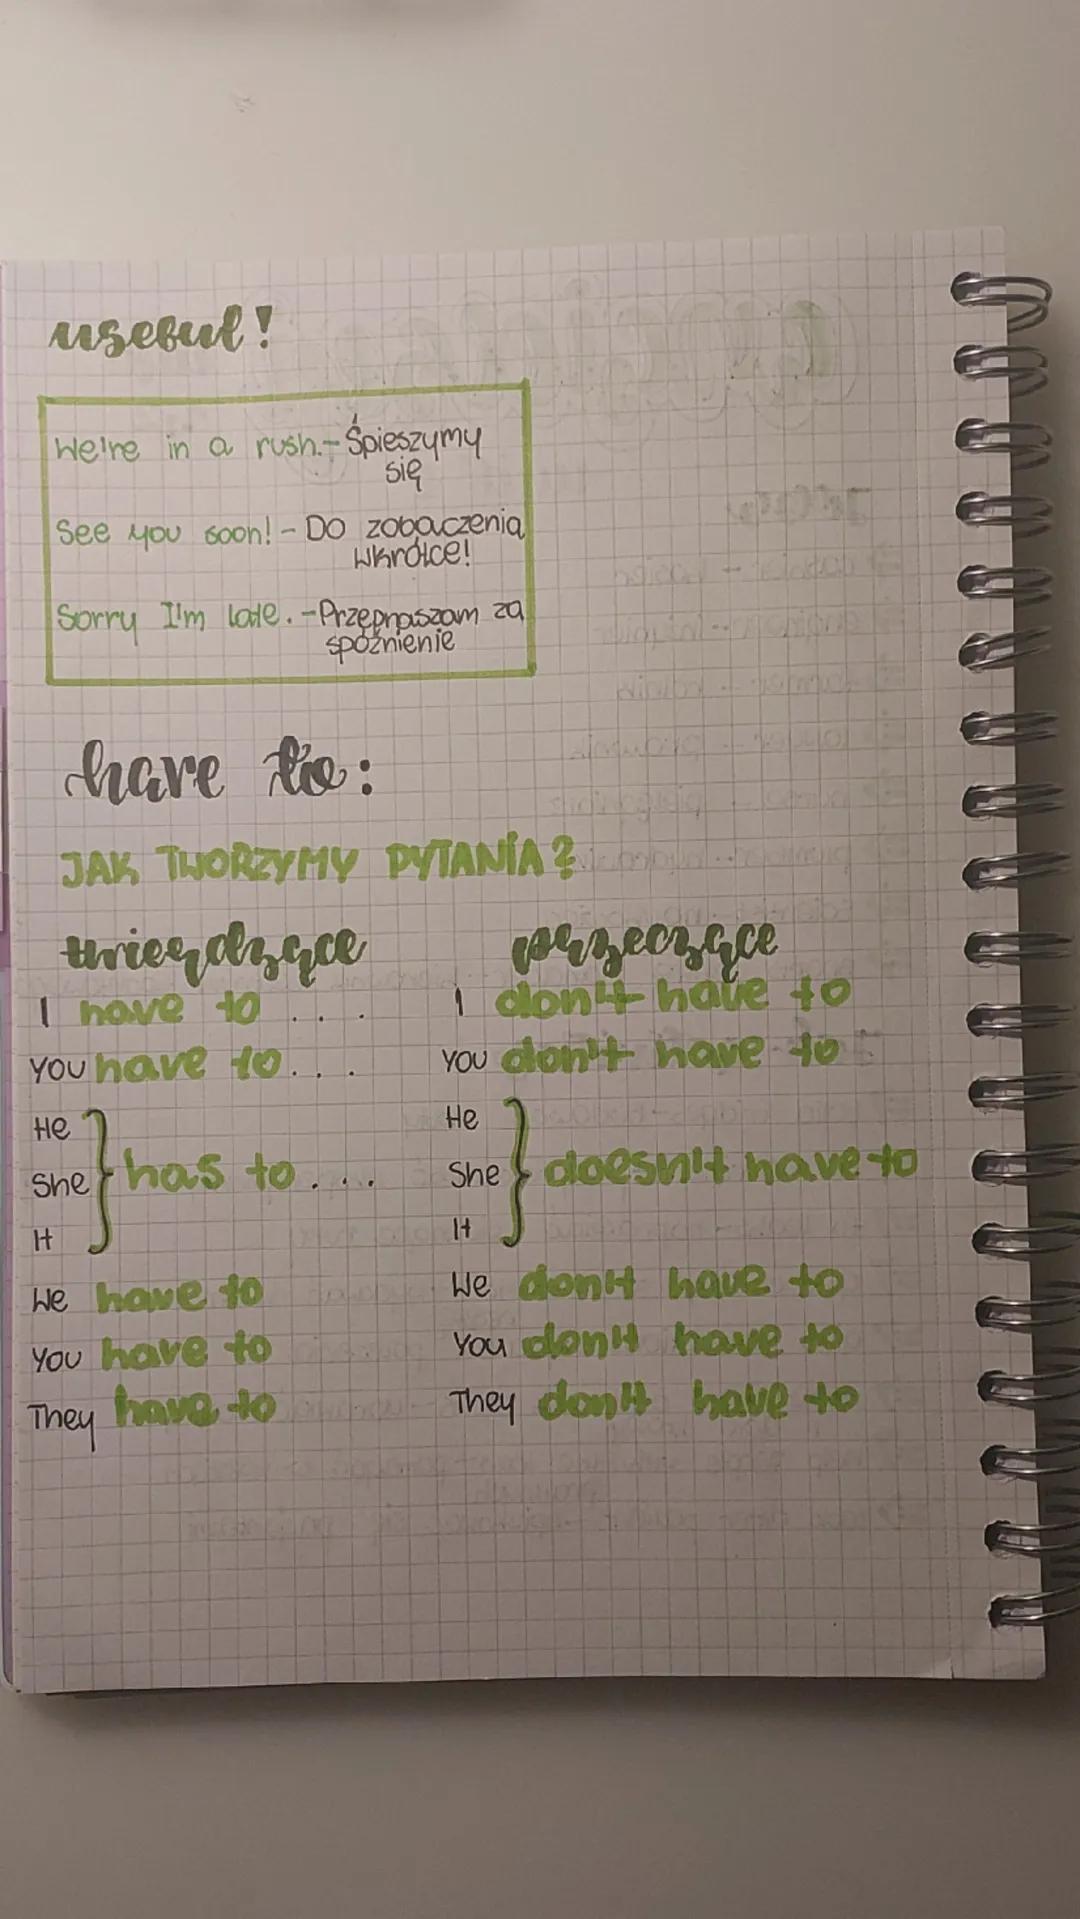 useful!
We're in a rush.- Śpieszymy
się
See you soon! - Do zobaczenia
wkrótce!
Sorry I'm late. - Przepraszam za
spóźnienie
have to:
JAK TWORZYMY PYTANIA?
twierdzące przeczące
I have to ... I don't have to
You have to... You don't have to
He He
She has to ... She doesn't have to
It It
We have to We don't have to
You have to You don't have to
They have to They don't have to